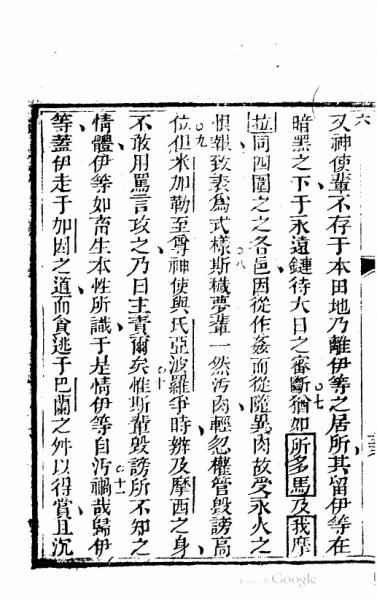 六
又神使輩不存于本田地乃離伊等之居所其留伊等在
暗黑之下于永遠鏈待大日之審斷猶如所多馬及我摩
拉同四圍之之各邑因從作姦而從隨異肉故受永火之
恨報致表為式樣斯穢夢輩一然汚肉輕忽權管毀謗高
位但米加勒至尊神使與氏亞波羅爭時辨及摩西之身
不敢用罵言攻之乃曰主責爾矣惟斯輩毀謗所不知之
情體伊等如畜生本性所識于是情伊等自汚禍哉歸伊
等蓋伊走于加因之道而食逃于巴蘭之舛以得賞且沉
七
八
九
十
十一
Google